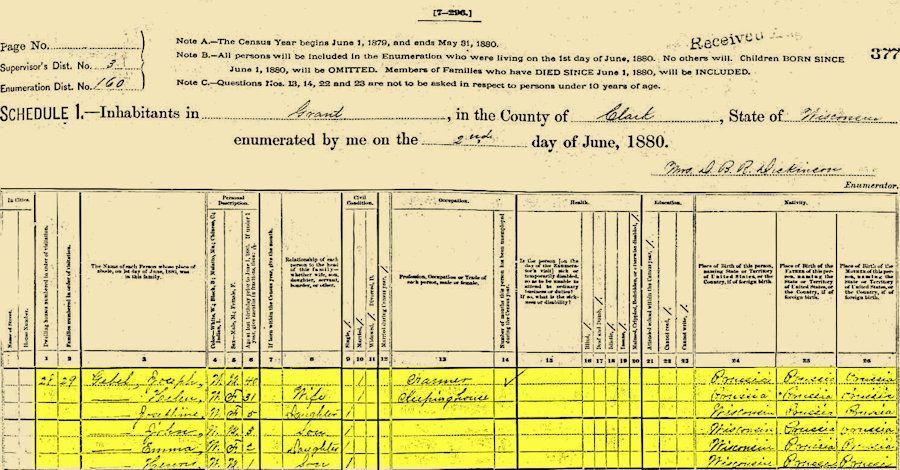 [7-296.]
Page No.
Supervisor's Dist. No. 3
Enumeration Dist. No. 160
Note A.—The Census Year begins June 1, 1879, and ends May 31, 1880.
Note B.—All persons will be included in the Enumeration who were living on the 1st day of June, 1880. No others will. Children BORN SINCE
June 1, 1880, will be OMITTED. Members of Families who have DIED SINCE June 1, 1880, will be INCLUDED.
Note C.—Questions Nos. 13, 14, 22 and 23 are not to be asked in respect to persons under 10 years of age.
Received
377
SCHEDULE 1.—Inhabitants in Grant, in the County of Clark, State of Wisconsin
enumerated by me on the 2nd day of June, 1880.
Mrs. D. B. R. Dickinson
Enumerator.
In Cities.
Name of Street.
House Number.
Dwelling houses numbered in order of visitation.
Families numbered in order of visitation.
The Name of each Person whose place of
abode, on 1st day of June, 1880, was
in this family.
Personal
Description.
Color—White, W.; Black, B.; Mulatto, Mu.; Chinese, C.;
Indian, I.
Sex—Male, M.; Female, F.
If born within the Census year, give the month.
Relationship of each
person to the head
of this family—
whether wife, son,
daughter, servant,
boarder, or other.
Civil
Condition.
Single, /
Married, /
Widowed, / Divorced, D.
Married during Census year, /
Occupation.
Profession, Occupation or Trade of
each person, male or female.
Number of months this person has been unemployed
during the Census year.
Health.
Is the person [on the
day of the Enumerator's
visit] sick or
temporarily disabled,
so as to be unable to
attend to ordinary
business or duties?
If so, what is the sickness
or disability?
Blind, /
Deaf and Dumb, /
Idiotic, /
Insane, /
Maimed, Crippled, Bedridden, or otherwise disabled, /
Education.
Attended school within the Census year, /
Cannot read, /
Cannot write, /
Nativity.
Place of Birth of this person,
naming State or Territory
of United States, or the
Country, if of foreign birth.
Place of Birth of the
FATHER of this person,
naming the State
or Territory of
United States, or the
Country, if of
foreign birth.
Place of Birth of the
MOTHER of this person,
naming the State
or Territory of
United States, or the
Country, if of
foreign birth.
1 2 3 4 5 6 7 8 9 10 11 12 13 14 15 16 17 18 19 20 21 22 23 24 25 26
29 29 Joseph, W M 40 / Farmer Prussia Prussia Prussia
Helen, W F 31 Wife / Keeping house Prussia Prussia Prussia
Josephine W F 5 Daughter / Wisconsin Prussia Prussia
John W M 3 Son / Wisconsin Prussia Prussia
Emma W F 2 Daughter / Wisconsin Prussia Prussia
Henry W M 1 Son / Wisconsin Prussia Prussia